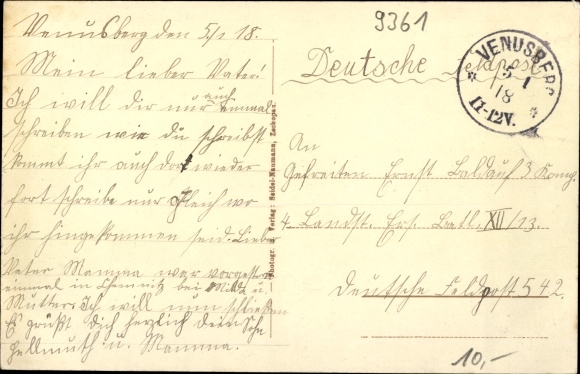 9361
Venusberg den 5/1 18.
Mein lieber Vater!
Ich will dir nur auch einmal
schreiben wie du schreibst
kommt ihr auch dort wieder
fort schreibe nur gleich wo
ihr hingekommen seid. Lieber
Vater Mamma war vorgestern
einmal in Chemnitz bei u.
Mutter. Ich will nun schließen
Es grüßt dich herzlich dein Sohn
Hellmuth u. Mamma.
Photogr. u. Verlag: Seidel-Naumann, Zschopau.
Deutsche Feldpost
VENUSBERG
5 1
18
11-12V.
An
Gefreiten Ernst Baldauf 3 Komp.
4. Landst. Ers. Batl. XII/13.
Deutsche Feldpost 542.
10,-